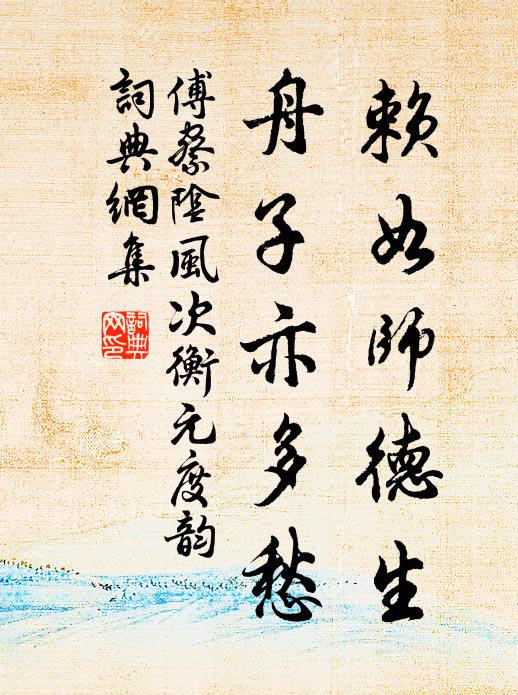 賴如師德生
舟子亦多愁
傅察陰風次衡元度韻
詞典網集
詞典
网印